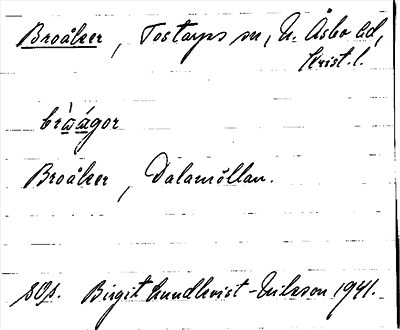 Broåker, Tostarps sn, N. Åsbo hd,
Krist. l.
bròágor
Broåker, Dalamöllan.
sop. Birgit Lundkvist-Nilsson 1941.